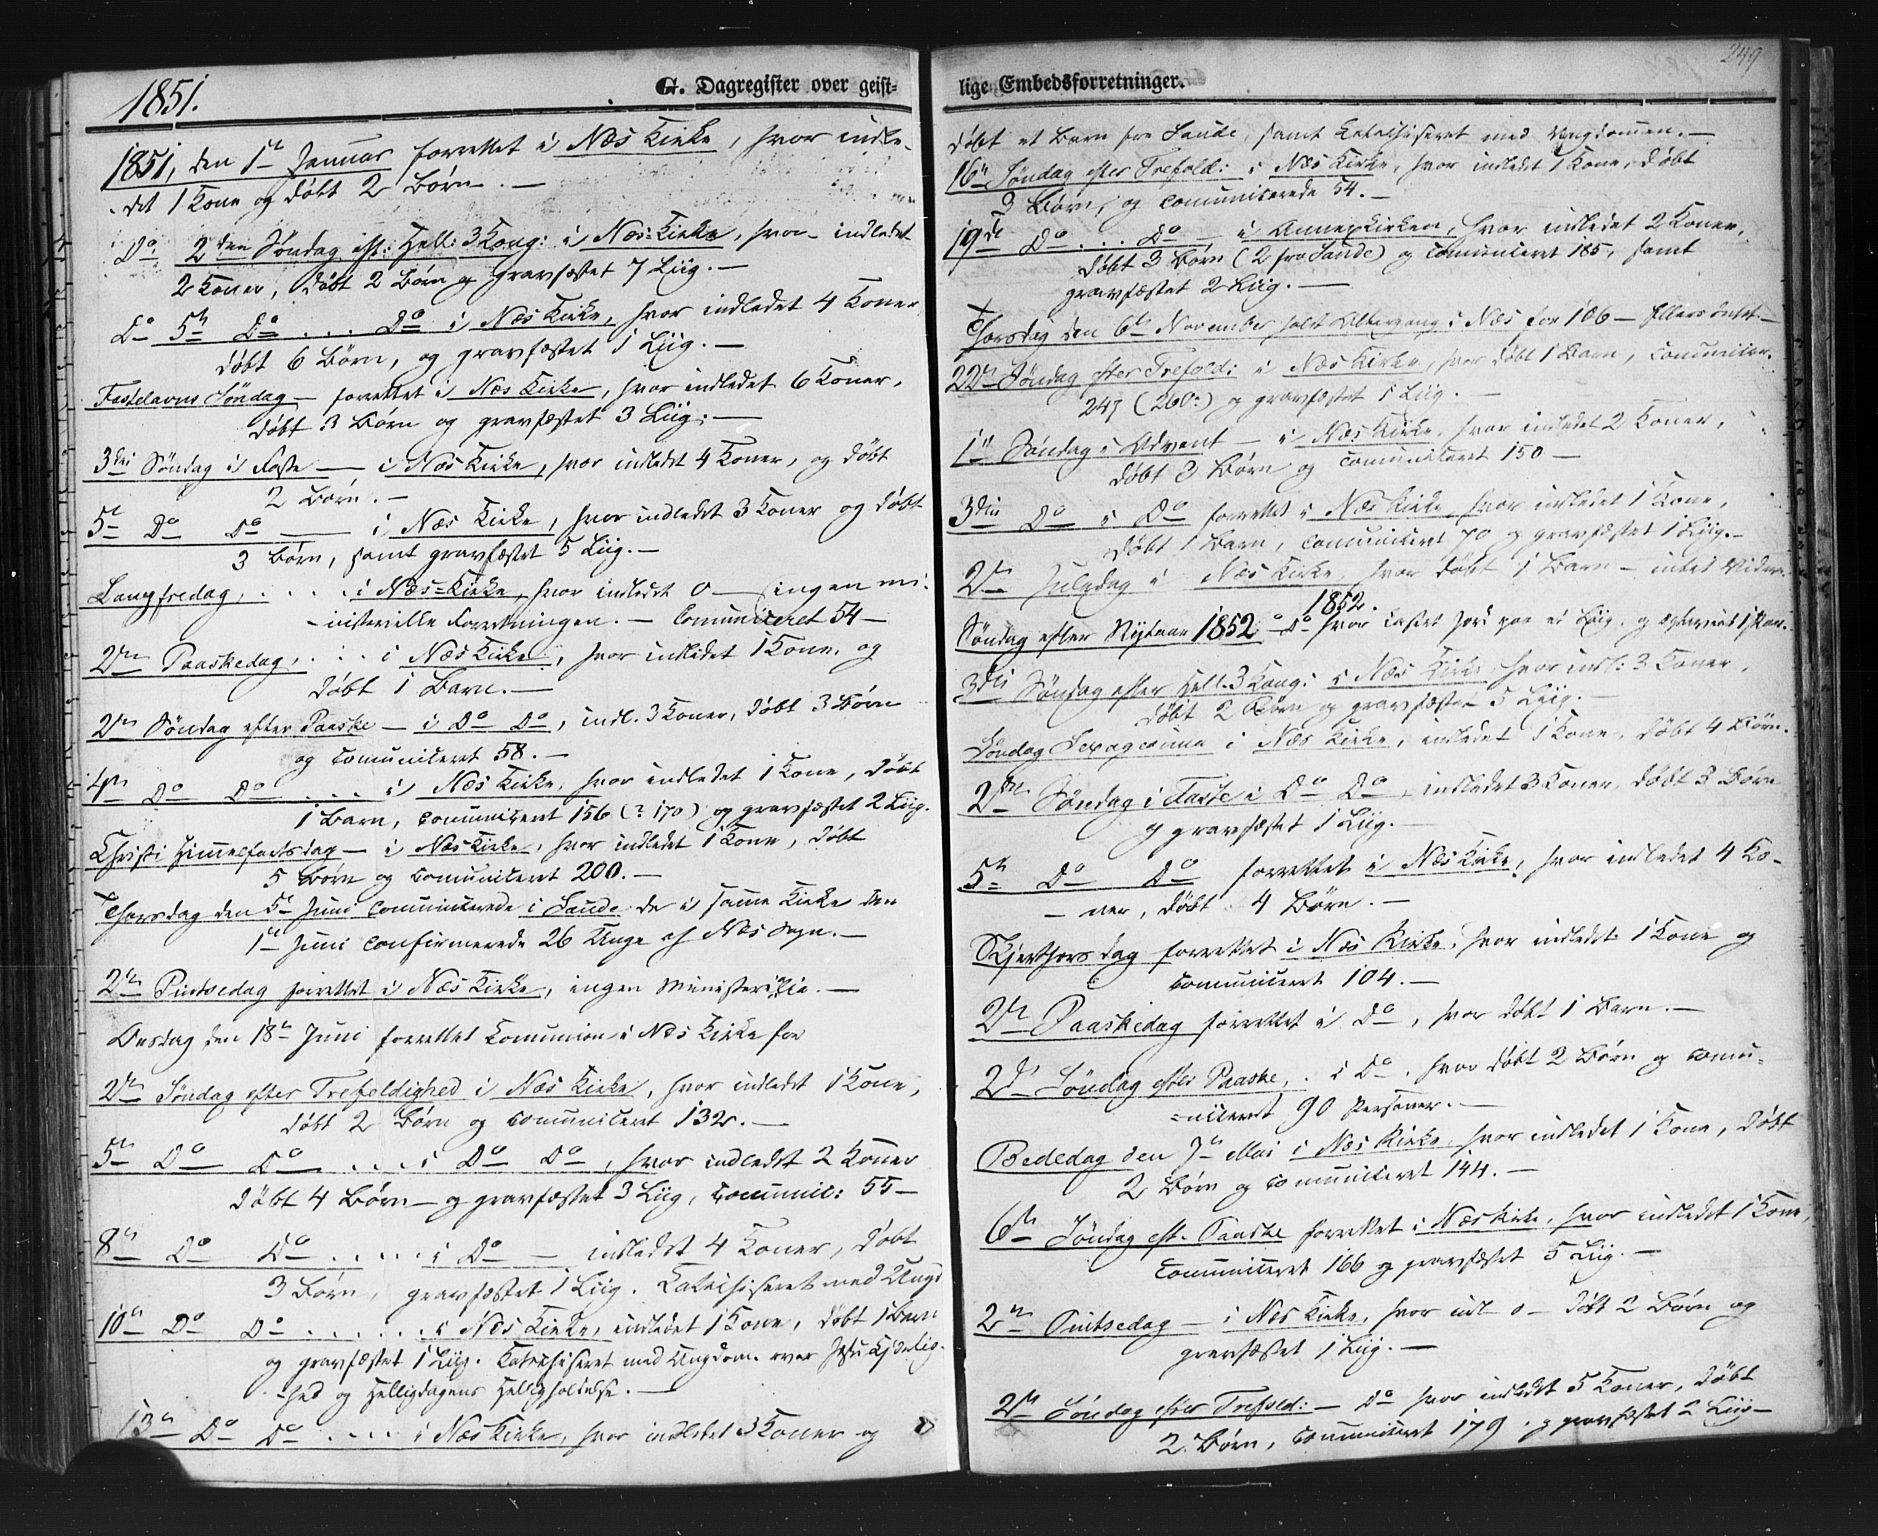 1851.
G. Dagregister over geist-
1851, den 1ste Januar forrettet i Næs Kirke, hvor indle-
det 1 Kone og døbt 2 Børn. —
Do 2den Søndag eft: Hell: 3 Kong: i Næs-Kirke, hvor indledet
2 Koner, døbt 2 Børn og gravfæstet 7 Liig. —
Do 5te Do . . . Do i Næs Kirke, hvor indledet 4 Koner
døbt 6 Børn, og gravfæstet 1 Liig. —
Fastelavns Søndag — forrettet i Næs Kirke, hvor indledet 6 Koner,
døbt 3 Børn og gravfæstet 3 Liig. —
3die Søndag i Faste — i Næs Kirke, hvor indledet 4 Koner, og døbt
2 Børn. —
5te Do Do — i Næs Kirke, hvor indledet 3 Koner og døbt
3 Børn, samt gravfæstet 5 Liig. —
Langfredag, . . . . i Næs-Kirke, hvor indledet 0 — ingen mi-
nisterielle Forretningen. — Comuniceret 54 —
2den Paaskedag, . . . i Næs Kirke, hvor indledet 1 Kone, og
døbt 1 Barn. —
2den Søndag efter Paaske — i Do Do, indl. 3 Koner, døbt 3 Børn
og comuniceret 58. —
4de Do Do . . . i Næs Kirke, hvor indledet 1 Kone, døbt
1 Barn, comuniceret 156 (? 170) og gravfæstet 2 Liig.
Christi Himmelfartsdag — i Næs Kirke, hvor indledet 1 Kone, døbt
5 Børn og comuniceret 200. —
Thorsdag den 5te Juni comunicerede i Sande de i samme Kirke den
1ste Juni confirmerede 26 Unge af Næs Sogn. —
2den Pintsedag forrettet i Næs Kirke, ingen Ministerialia. —
Onsdag den 18de Juni forrettet Comunion i Næs Kirke for
2den Søndag efter Trefoldighed i Næs Kirke, hvor indledet 1 Kone,
døbt 2 Børn og comuniceret 132. —
5te Do Do . . . i Do Do, hvor indledet 2 Koner
døbt 4 Børn — og gravfæstet 3 Liig, comunic: 55 —
8de Do Do . . . . i Do — indledet 4 Koner, døbt
3 Børn, gravfæstet 1 Liig. Catechiseret med Ungd
10de Do Do . . . . . i Næs Kirke, indledet 1 Kone, døbt 1 Barn
og gravfæstet 1 Liig. Catechiseret med Ungdom. over Jesu Kjærlig-
hed og Helligdagens Helligholdelse. —
13de Do Do . . . . i Næs Kirke, hvor indledet 3 Koner og
249
lige Embedsforretninger.
døbt et Barn fra Sande, samt Catechiseret med Ungdommen. —
16de Søndag efter Trefold: i Næs Kirke, hvor indledet 1 Kone, døbt
3 Børn, og comunicerede 54. —
19de Do . . . Do — i Annexkirken, hvor indledet 2 Koner,
døbt 3 Børn (2 fra Sande) og comuniceret 185, samt
gravfæstet 2 Liig. —
Thorsdag den 6te November holdt Altergang i Næs for 106 — Ellers Intet —
22de Søndag efter Trefold: i Næs Kirke, hvor døbt 1 Barn, comunicer.
247 (260?) og gravfæstet 1 Liig. —
1ste Søndag i Advent — i Næs Kirke, hvor indledet 2 Koner,
døbt 3 Børn og comuniceret 150 —
3die Do i Do forrettet i Næs Kirke, hvor indledet 1 Kone,
døbt 1 Barn, comuniceret 70 og gravfæstet 1 Liig. —
2den Juledag i Næs Kirke hvor døbt 1 Barn — intet Videre.
1852.
Søndag efter Nytaar 1852 — Do hvor castet Jord paa et Liig, og 1 Par.
3die Søndag efter Hell. 3 Kong: i Næs Kirke hvor indl: 3 Koner,
døbt 2 Børn og gravfæstet 5 Liig. —
Søndag Sexagesima i Næs Kirke, indledet 1 Kone, døbt 4 Børn.
2den Søndag i Faste i Do Do, indledet 3 Koner, døbt 3 Børn
og gravfæstet 1 Liig. —
5te Do Do forrettet i Næs Kirke, hvor indledet 4 Ko-
ner, døbt 4 Børn. —
Skjærthorsdag forrettet i Næs Kirke, hvor indledet 1 Kone og
comuniceret 104. —
2den Paaskedag forrettet i Do, hvor døbt 1 Barn. —
2den Søndag efter Paaske, . i Do . hvor døbt 2 Børn og comu-
niceret 90 Personer. —
Bededag den 7de Mai i Næs Kirke hvor indledet 1 Kone, døbt
2 Børn og comuniceret 144. —
6te Søndag eft. Paaske forrettet i Næs Kirke, hvor indledet 1 Kone,
comuniceret 166 og gravfæstet 5 Liig. —
2den Pintsedag — i Næs Kirke, hvor indl 0 — døbt 2 Børn og
gravfæstet 1 Liig. —
2den Søndag efter Trefold: — Do hvor indledet 5 Koner, døbt
2 Børn, comuniceret 179, og gravfæstet 2 Liig —